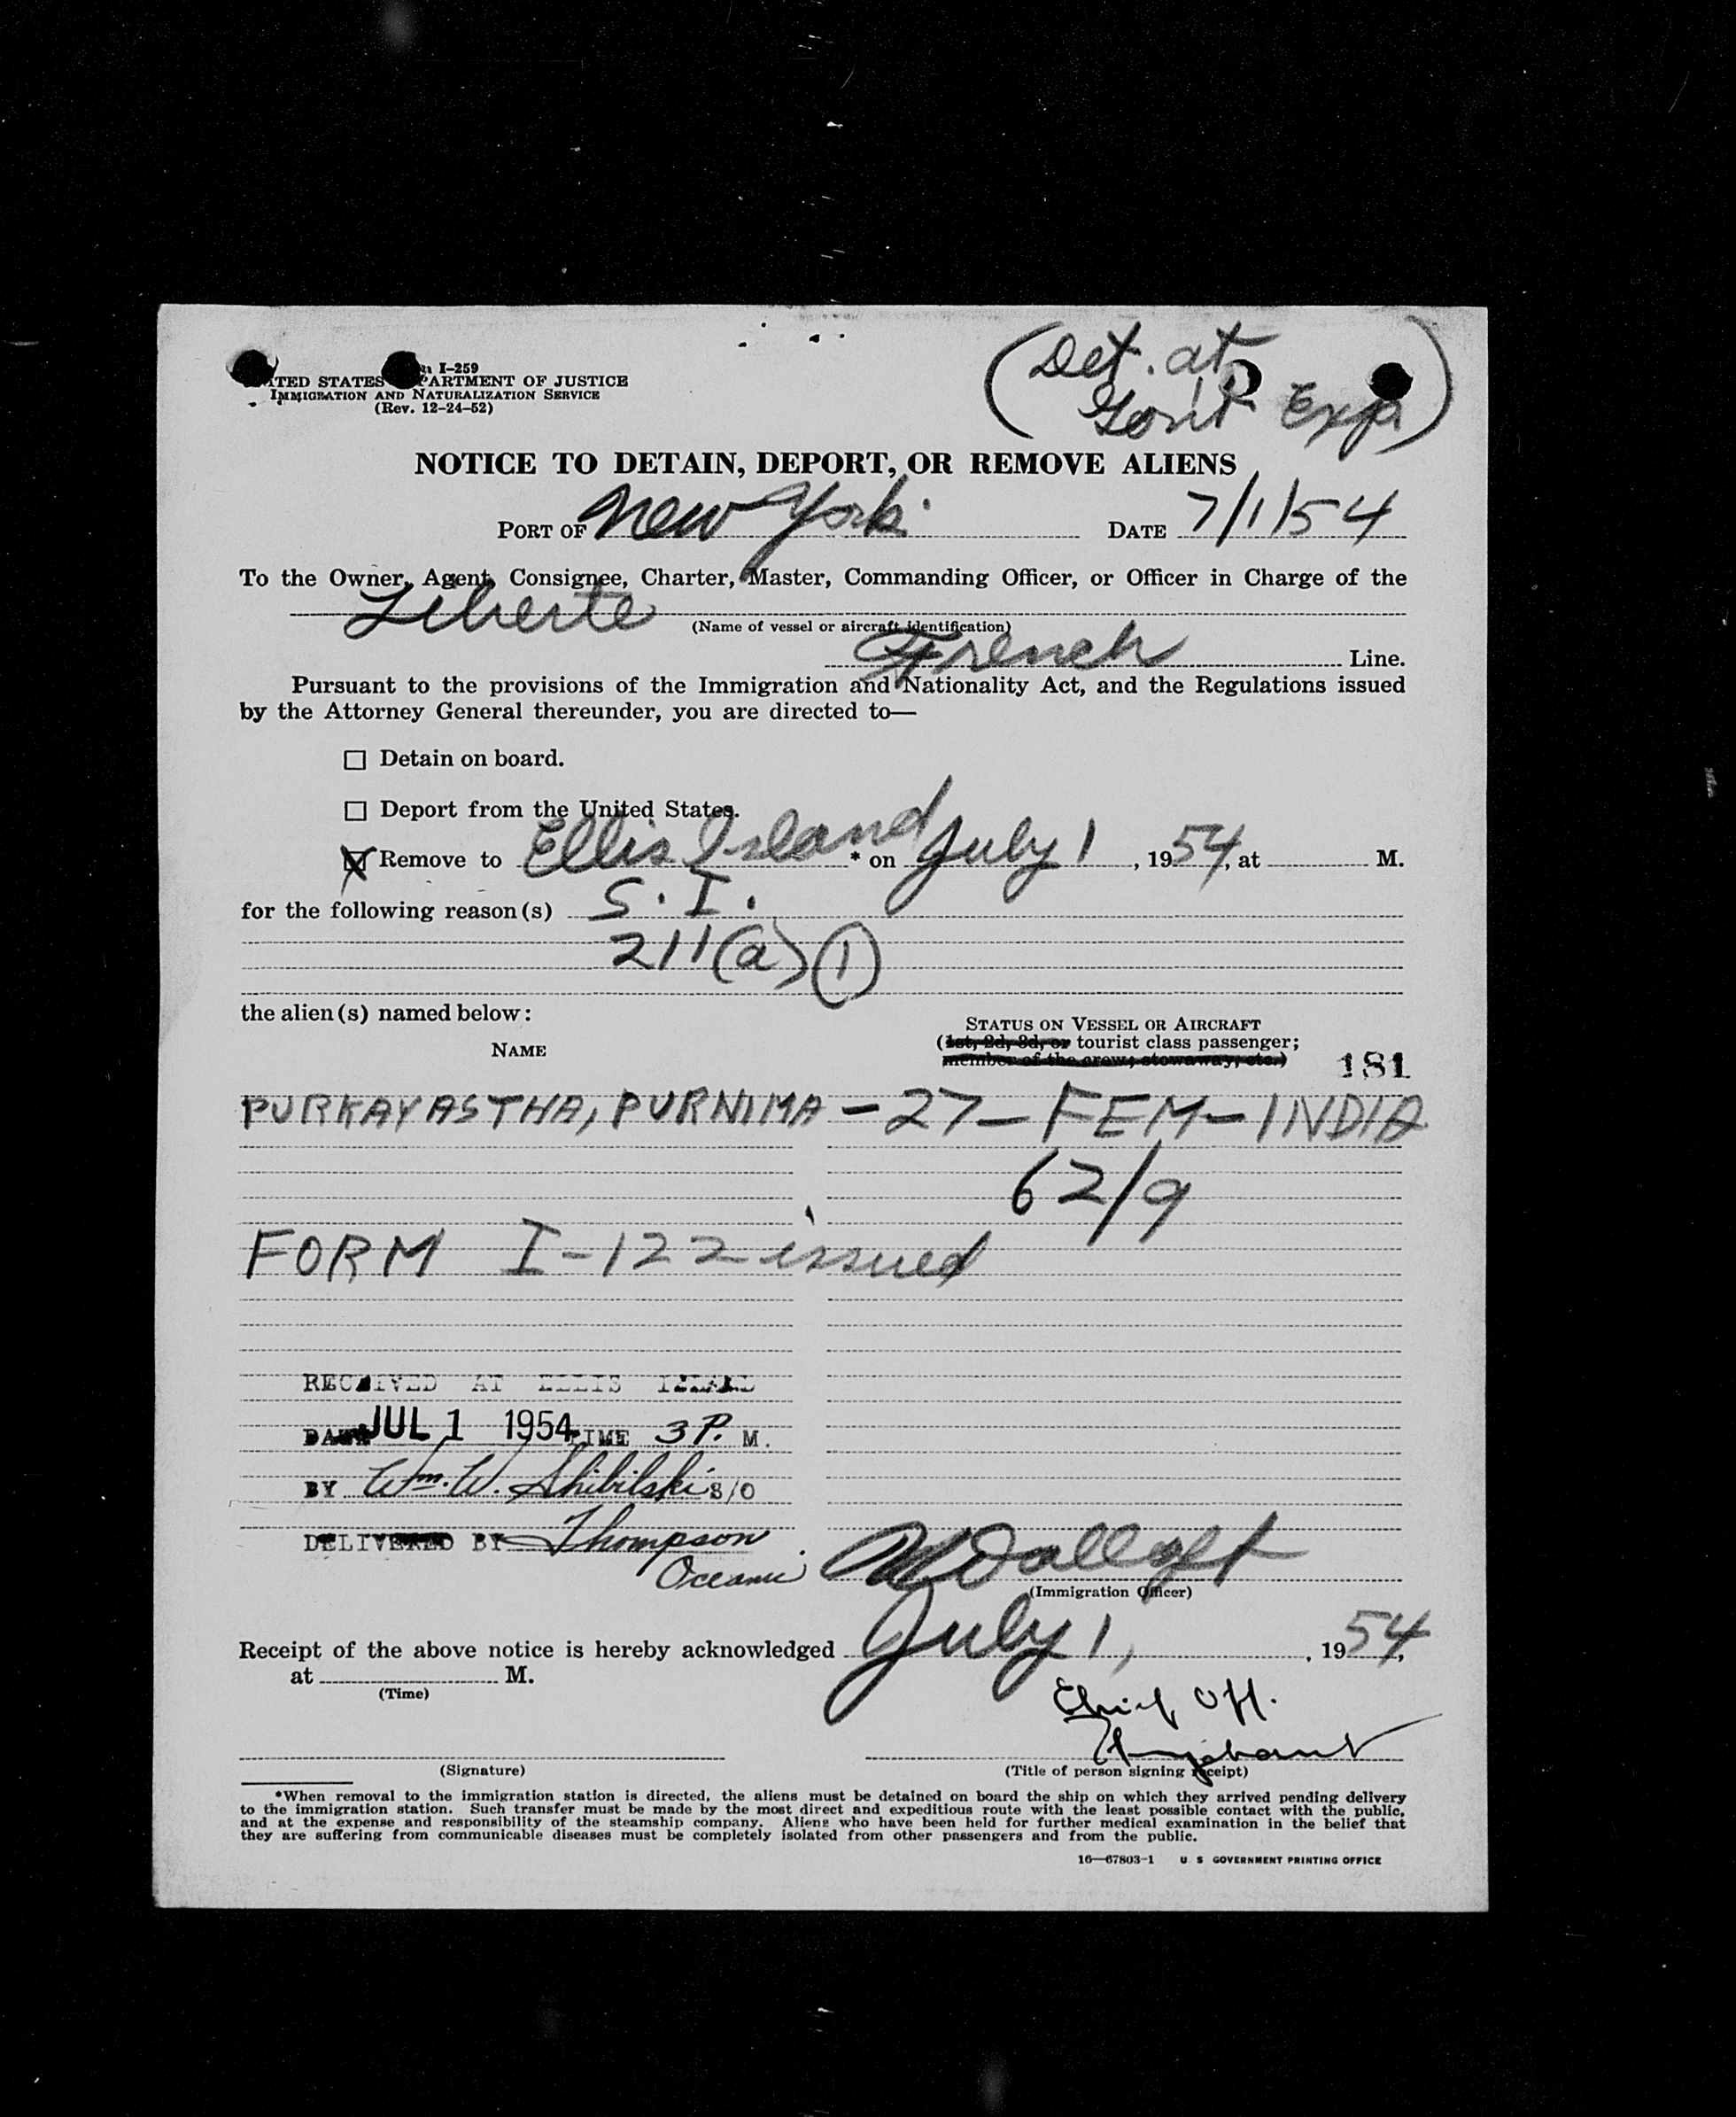 (Det. at
Gov't Exp)
I-259
UNITED STATES DEPARTMENT OF JUSTICE
IMMIGRATION AND NATURALIZATION SERVICE
(Rev. 12-24-52)
NOTICE TO DETAIN, DEPORT, OR REMOVE ALIENS
PORT OF New York DATE 7/1/54
To the Owner, Agent, Consignee, Charter, Master, Commanding Officer, or Officer in Charge of the
Liberte
(Name of vessel or aircraft identification)
French Line.
Pursuant to the provisions of the Immigration and Nationality Act, and the Regulations issued
by the Attorney General thereunder, you are directed to—
☐ Detain on board.
☐ Deport from the United States.
☒ Remove to Ellis Island * on July 1, 1954, at M.
for the following reason(s) S. I.
211(a)(1)
the alien(s) named below:
NAME
STATUS ON VESSEL OR AIRCRAFT
(1st, 2d, 3d, or tourist class passenger;
member of the crew; stowaway, etc.)
181
PURKAYASTHA, PURNIMA - 27 - FEM - INDIA
62/9
FORM I-122 issued
RECEIVED AT ELLIS ISLAND
DATE JUL 1 1954 TIME 3 P. M.
BY Wm. W. Shibilski S/O
DELIVERED BY Thompson
Oceanic
(Immigration Officer)
Receipt of the above notice is hereby acknowledged July 1, , 1954,
at M.
(Time)
Chief Off.
(Signature)
(Title of person signing receipt)
*When removal to the immigration station is directed, the aliens must be detained on board the ship on which they arrived pending delivery
to the immigration station. Such transfer must be made by the most direct and expeditious route with the least possible contact with the public,
and at the expense and responsibility of the steamship company. Aliens who have been held for further medical examination in the belief that
they are suffering from communicable diseases must be completely isolated from other passengers and from the public.
16—67803-1 U S GOVERNMENT PRINTING OFFICE